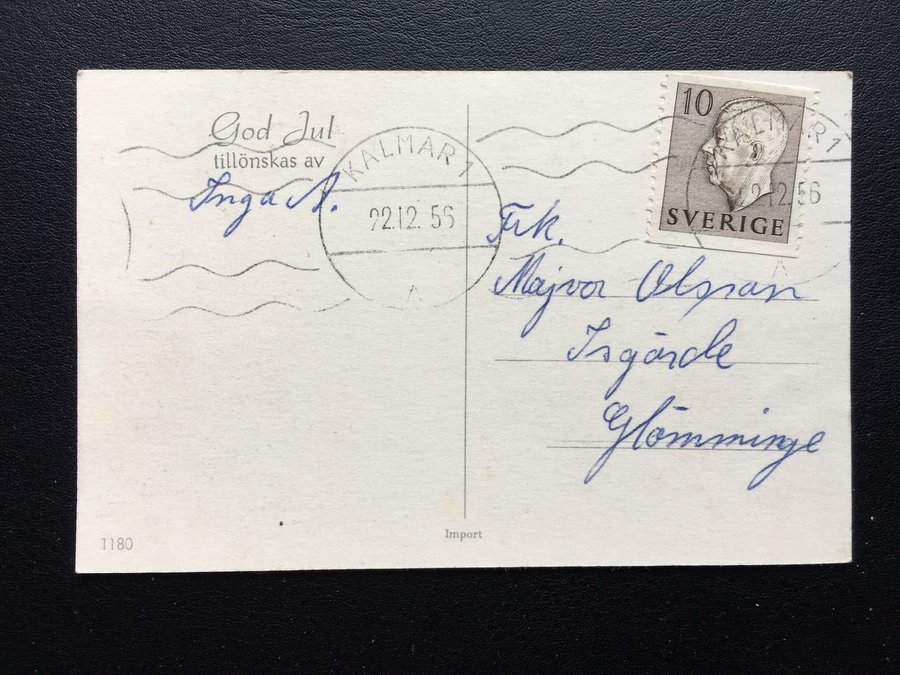 God Jul
tillönskas av
Inga A.
KALMAR 1
22.12.56
A
10
SVERIGE
KALMAR 1
22.12.56
A
Frk.
Majvor Olsson
Isgärde
Glömminge
1180
Import